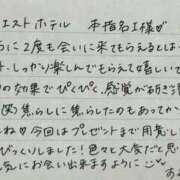 エストホテル 本指名I様♡
うに2度も会いに来てもらえるとしま
ト・しっかり楽しんでもらえて嬉しいて
の効果でぴくぴく感覚が動き
(笑)焦らしに焦らしたのもあってか
ね♡今回はプレゼントまで用意し
びっくりしました!色々と大食だと思
気にお会い出来ますように